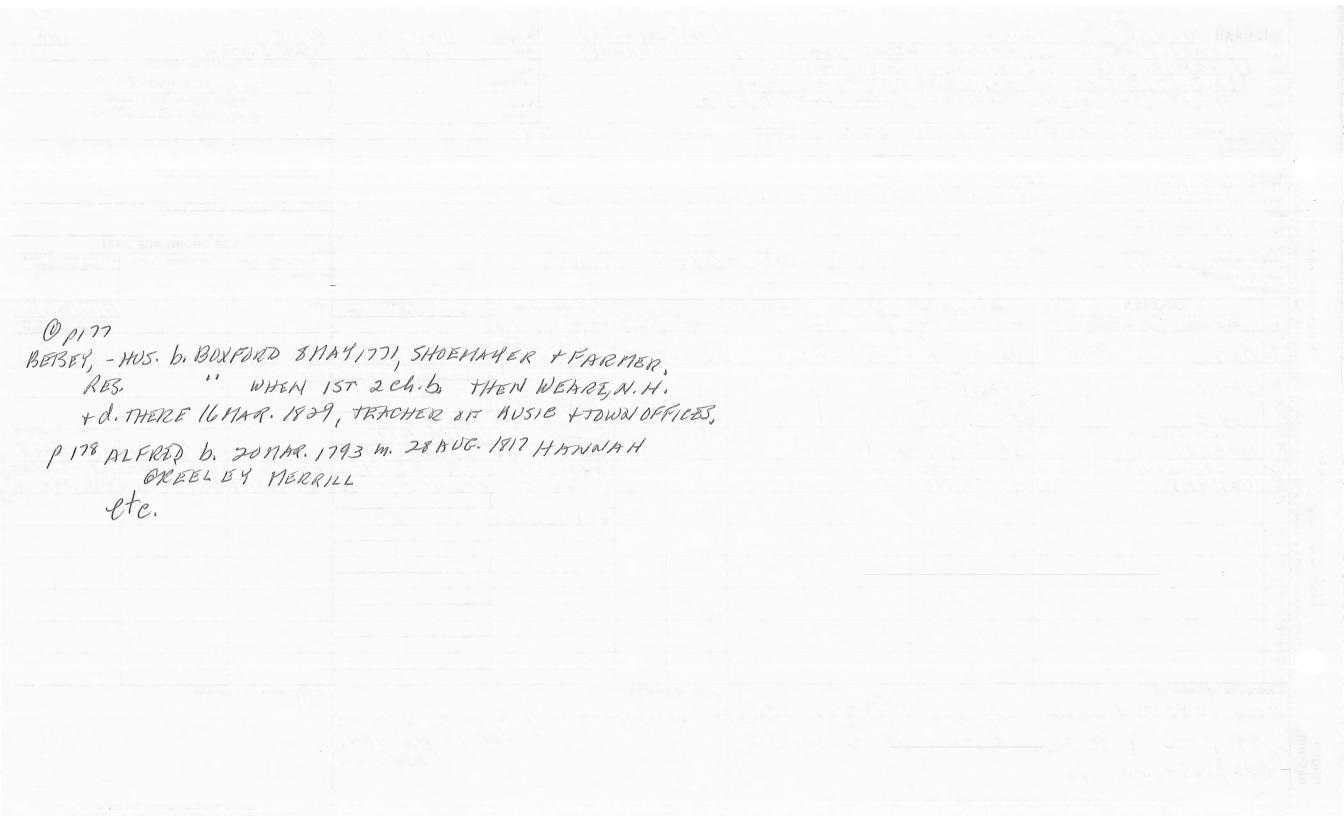 ① p177
BETSEY, - HUS. b. BOXFORD 8 MAY 1771, SHOEMAKER + FARMER.
RES. " WHEN 1ST 2 ch. b. THEN WEARE, N.H.
+ d. THERE 16 MAR. 1829, TEACHER OF MUSIC + TOWN OFFICES.
p 178 ALFRED b. 20 MAR. 1793 m. 28 AUG. 1817 HANNAH
GREELEY MERRILL
etc.